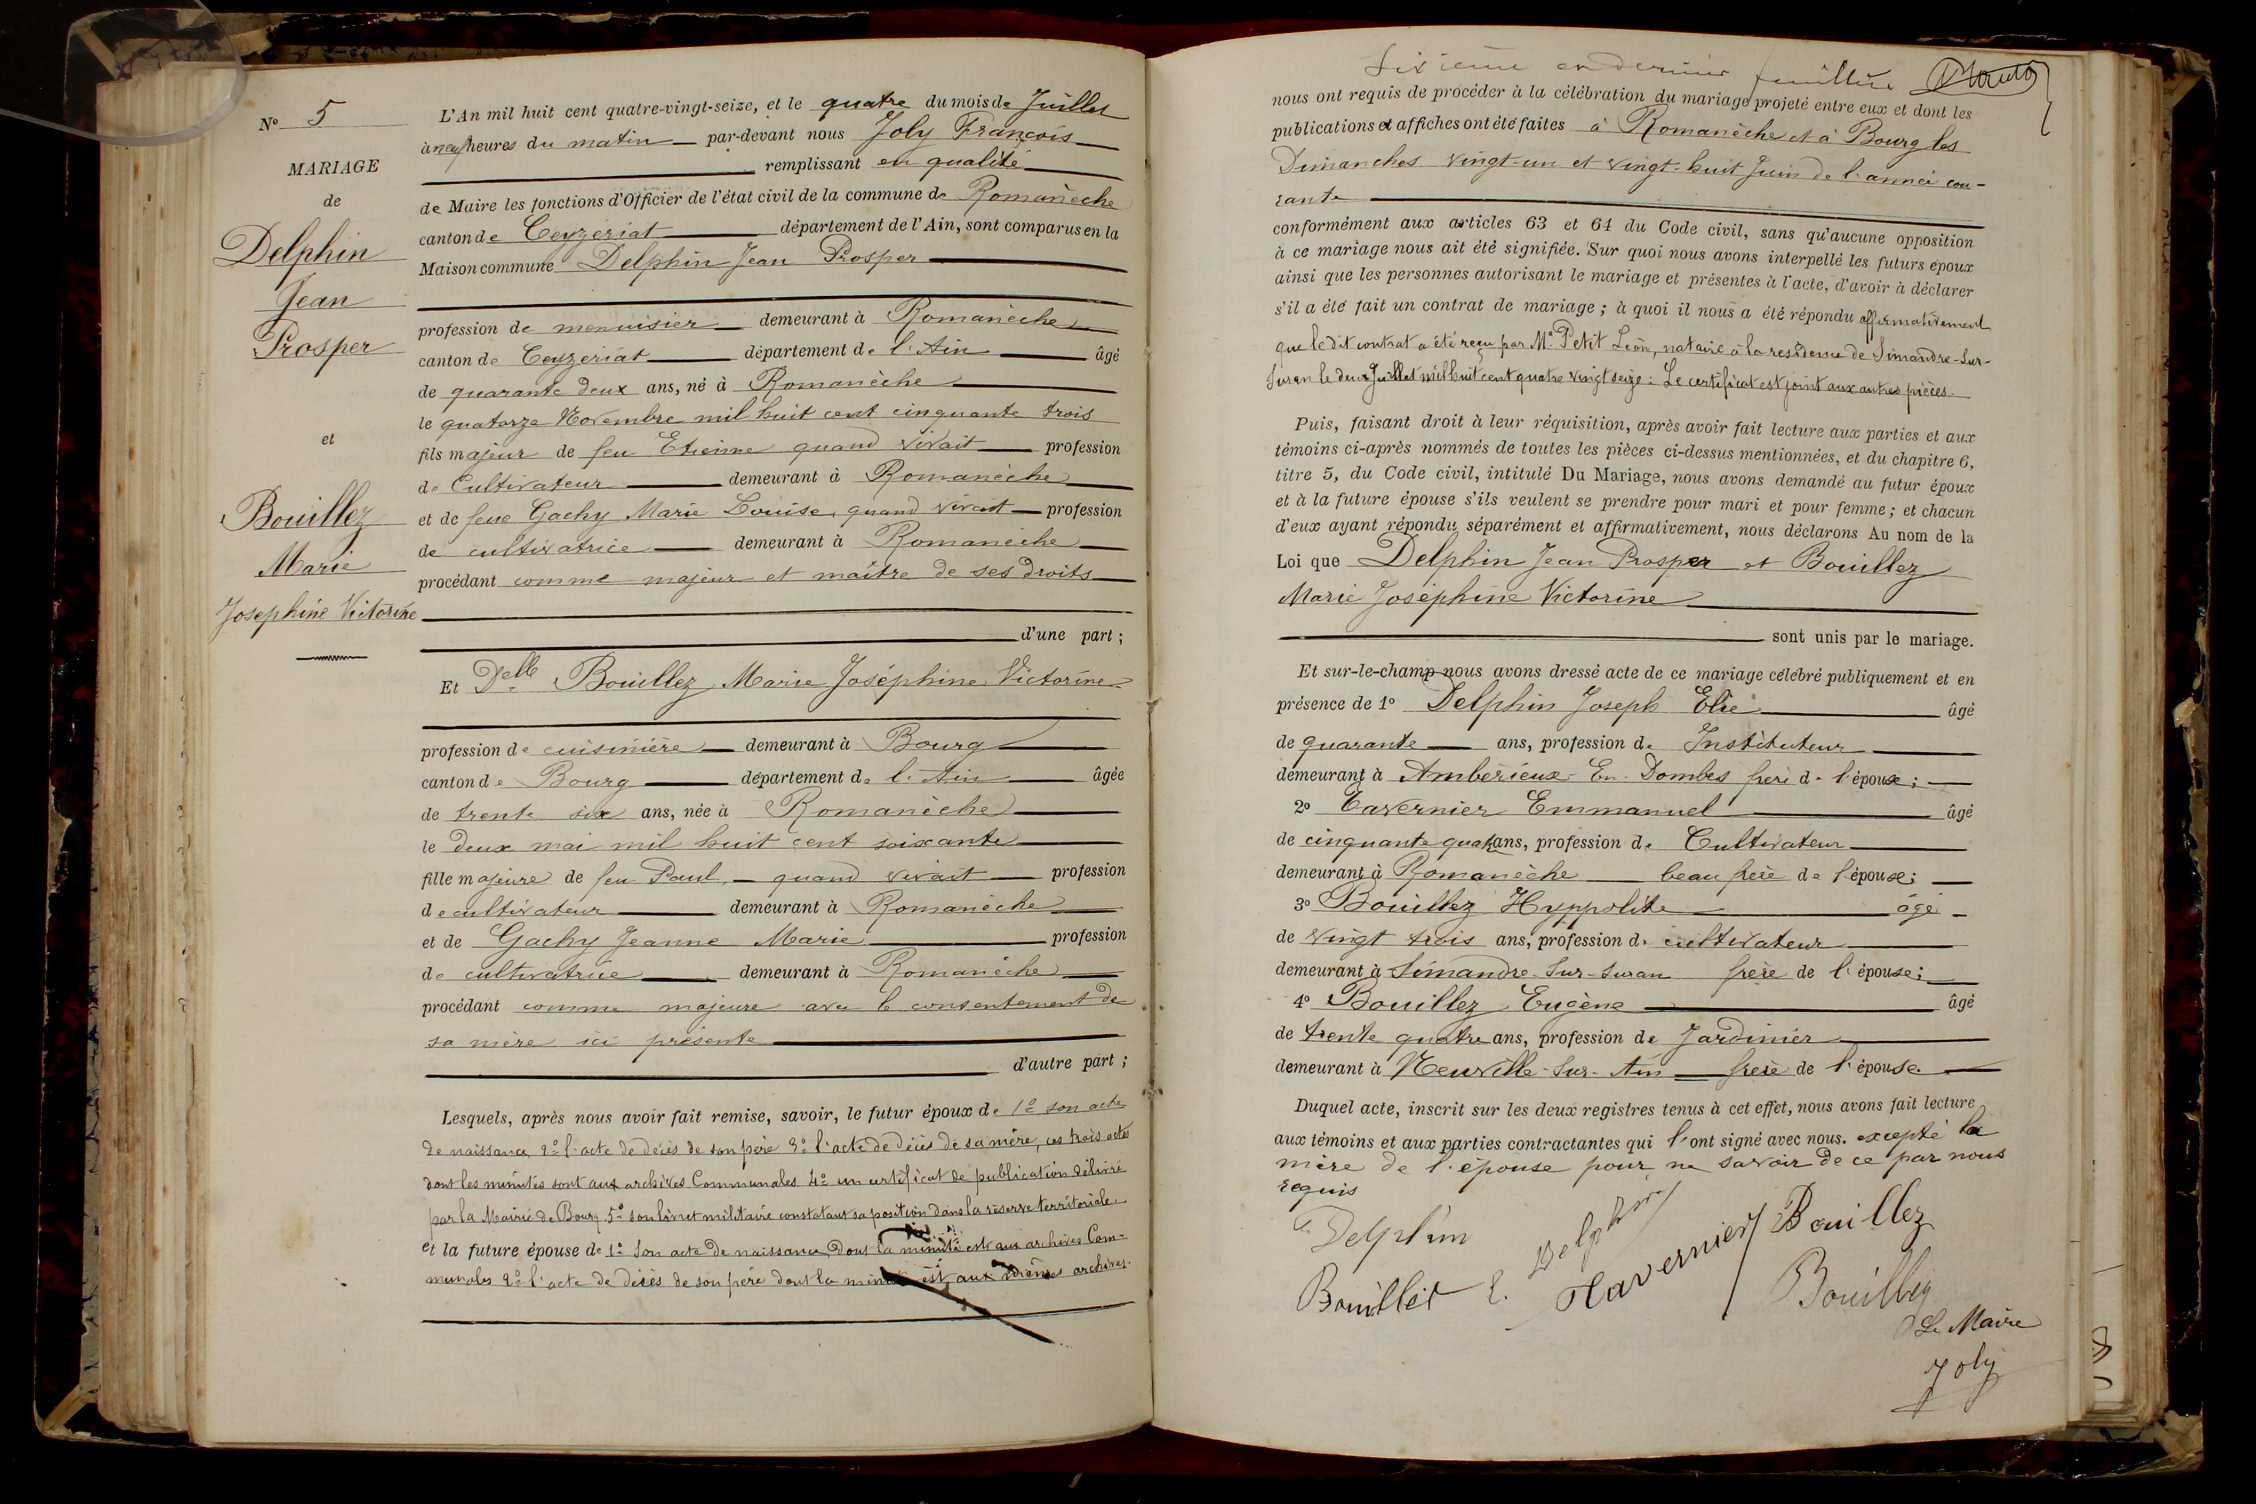 N° 5
MARIAGE
de
Delphin
Jean
Prosper
et
Bouillez
Marie
Josephine Victorine
L'An mil huit cent quatre-vingt-seize, et le quatre du mois de Juillet
à neuf heures du matin par-devant nous Joly François
remplissant en qualité
de Maire les fonctions d'Officier de l'état civil de la commune de Romanèche
canton de Ceyzeriat département de l'Ain, sont comparus en la
Maison commune Delphin Jean Prosper
profession de menuisier demeurant à Romanèche
canton de Ceyzeriat département de l'Ain âgé
de quarante deux ans, né à Romanèche
le quatorze Novembre mil huit cent cinquante trois
fils majeur de feu Etienne quand vivait profession
de Cultivateur demeurant à Romanèche
et de feue Gachy Marie Louise, quand vivait profession
de cultivatrice demeurant à Romanèche
procédant comme majeur et maître de ses droits
d'une part ;
Et Delle Bouillez Marie Joséphine Victorine
profession de cuisinière demeurant à Bourg
canton de Bourg département de l'Ain âgée
de trente six ans, née à Romanèche
le deux mai mil huit cent soixante
fille majeure de feu Paul, quand vivait profession
de cultivateur demeurant à Romanèche
et de Gachy Jeanne Marie profession
de cultivatrice demeurant à Romanèche
procédant comme majeure avec le consentement de
sa mère ici présente
d'autre part ;
Lesquels, après nous avoir fait remise, savoir, le futur époux de 1° son acte
de naissance 2° l'acte de décès de son père 3° l'acte de décès de sa mère, ces trois actes
dont les minutes sont aux archives Communales 4° un certificat de publication délivré
par la Mairie de Bourg 5° son livret militaire constatant sa position dans la réserve territoriale
et la future épouse de 1° Son acte de naissance dont la minute est aux archives Com-
munales 2° l'acte de décès de son père dont la minute est aux mêmes archives.
Sixième en dernier feuillet
nous ont requis de procéder à la célébration du mariage projeté entre eux et dont les
publications et affiches ont été faites à Romanèche et à Bourg les
Dimanches vingt-un et vingt-huit Juin de l'année cou-
rante
conformément aux articles 63 et 64 du Code civil, sans qu'aucune opposition
à ce mariage nous ait été signifiée. Sur quoi nous avons interpellé les futurs époux
ainsi que les personnes autorisant le mariage et présentes à l'acte, d'avoir à déclarer
s'il a été fait un contrat de mariage ; à quoi il nous a été répondu affirmativement
que le dit contrat a été reçu par Me Petit Léon, notaire à la residence de Simandre-Sur-
Suran le deux Juillet mil huit cent quatre vingt seize : Le certificat est joint aux autres pièces.
Puis, faisant droit à leur réquisition, après avoir fait lecture aux parties et aux
témoins ci-après nommés de toutes les pièces ci-dessus mentionnées, et du chapitre 6,
titre 5, du Code civil, intitulé Du Mariage, nous avons demandé au futur époux
et à la future épouse s'ils veulent se prendre pour mari et pour femme ; et chacun
d'eux ayant répondu séparément et affirmativement, nous déclarons Au nom de la
Loi que Delphin Jean Prosper et Bouillez
Marie Joséphine Victorine
sont unis par le mariage.
Et sur-le-champ nous avons dressé acte de ce mariage célébré publiquement et en
présence de 1° Delphin Joseph Elie âgé
de quarante ans, profession de Instituteur
demeurant à Ambérieux-En-Dombes frère de l'époux ;
2° Tavernier Emmanuel âgé
de cinquante quatre ans, profession de Cultivateur
demeurant à Romanèche beau frère de l'époux ;
3° Bouillez Hyppolite âgé
de vingt trois ans, profession de cultivateur
demeurant à Simandre-Sur-Suran frère de l'épouse ;
4° Bouillez Eugène âgé
de trente quatre ans, profession de Jardinier
demeurant à Neuville-Sur-Ain frère de l'épouse.
Duquel acte, inscrit sur les deux registres tenus à cet effet, nous avons fait lecture
aux témoins et aux parties contractantes qui l'ont signé avec nous. excepté la
mère de l'épouse pour ne savoir de ce par nous
requis
Delphin
Delphin
Tavernier
Bouillez
Bouillet E.
Bouillez
Le Maire
Joly